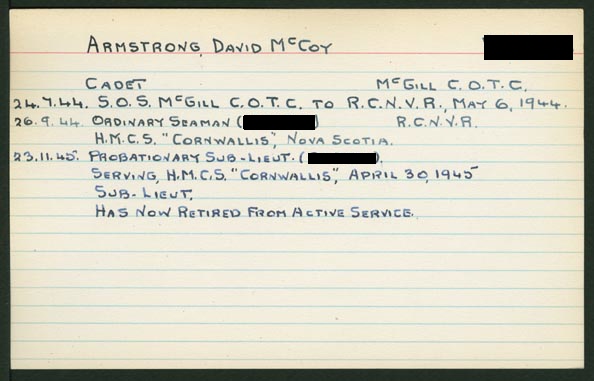 ARMSTRONG, DAVID MCCOY
CADET MCGILL C.O.T.C.
24.7.44. S.O.S. MCGILL C.O.T.C. TO R.C.N.V.R., MAY 6, 1944.
26.9.44 ORDINARY SEAMAN ( ) R.C.N.V.R.
H.M.C.S. "CORNWALLIS", NOVA SCOTIA.
23.11.45. PROBATIONARY SUB-LIEUT. ( ),
SERVING, H.M.C.S. "CORNWALLIS", APRIL 30, 1945
SUB-LIEUT.
HAS NOW RETIRED FROM ACTIVE SERVICE.